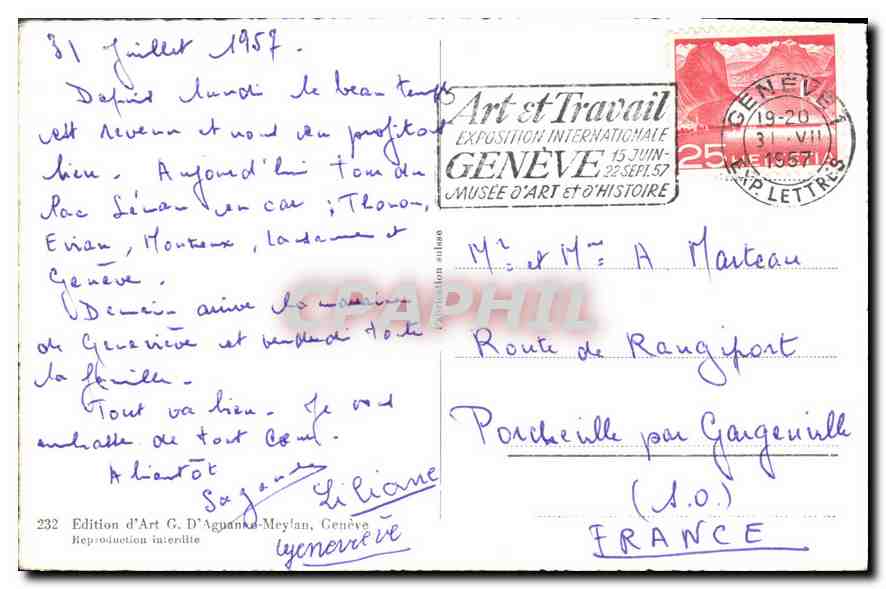 31 Juillet 1957.
Depuis lundi le beau temps
est revenu et nous en profitons
bien. Aujourd'hui tour du
lac Léman en car ; Thonon,
Evian, Montreux, Lausanne et
Genève.
Demain arrive la marraine
de Geneviève et vendredi toute
la famille.
Tout va bien. Je vous
embrasse de tout cœur.
A bientôt
Liliane
Geneviève
232 Edition d'Art G. D'Agnanno-Meylan, Genève
Reproduction interdite
Fabrication suisse
CPAPHIL
Art et Travail
EXPOSITION INTERNATIONALE
GENÈVE 15 JUIN-
22 SEPT. 57
MUSÉE D'ART et D'HISTOIRE
GENÈVE 1
19-20
31.VII
1957
EXP. LETTRES
25 HELVETIA
Mr et Mme A. Marteau
Route de Rangiport
Porcheville par Gargenville
(S.O.)
FRANCE